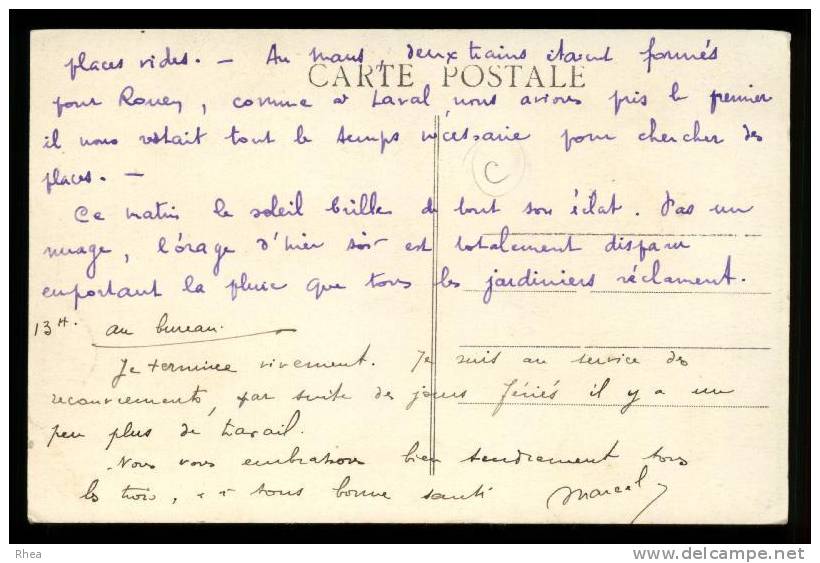 places vides. — Au Mans, deux trains étaient formés
CARTE POSTALE
pour Rouen, comme à Laval nous avions pris le premier
il nous restait tout le temps nécessaire pour chercher des
places. —
C
Ce matin le soleil brille de tout son éclat. Pas un
nuage, l'orage d'hier soir est totalement disparu
emportant la pluie que tous les jardiniers réclament.
13H. au bureau.
Je termine vivement. Je suis au service des
recouvrements, par suite des jours fériés il y a un
peu plus de travail.
Nous vous embrassons bien tendrement tous
les trois, tous bonne santé Marcel
Rhea
www.delcampe.net